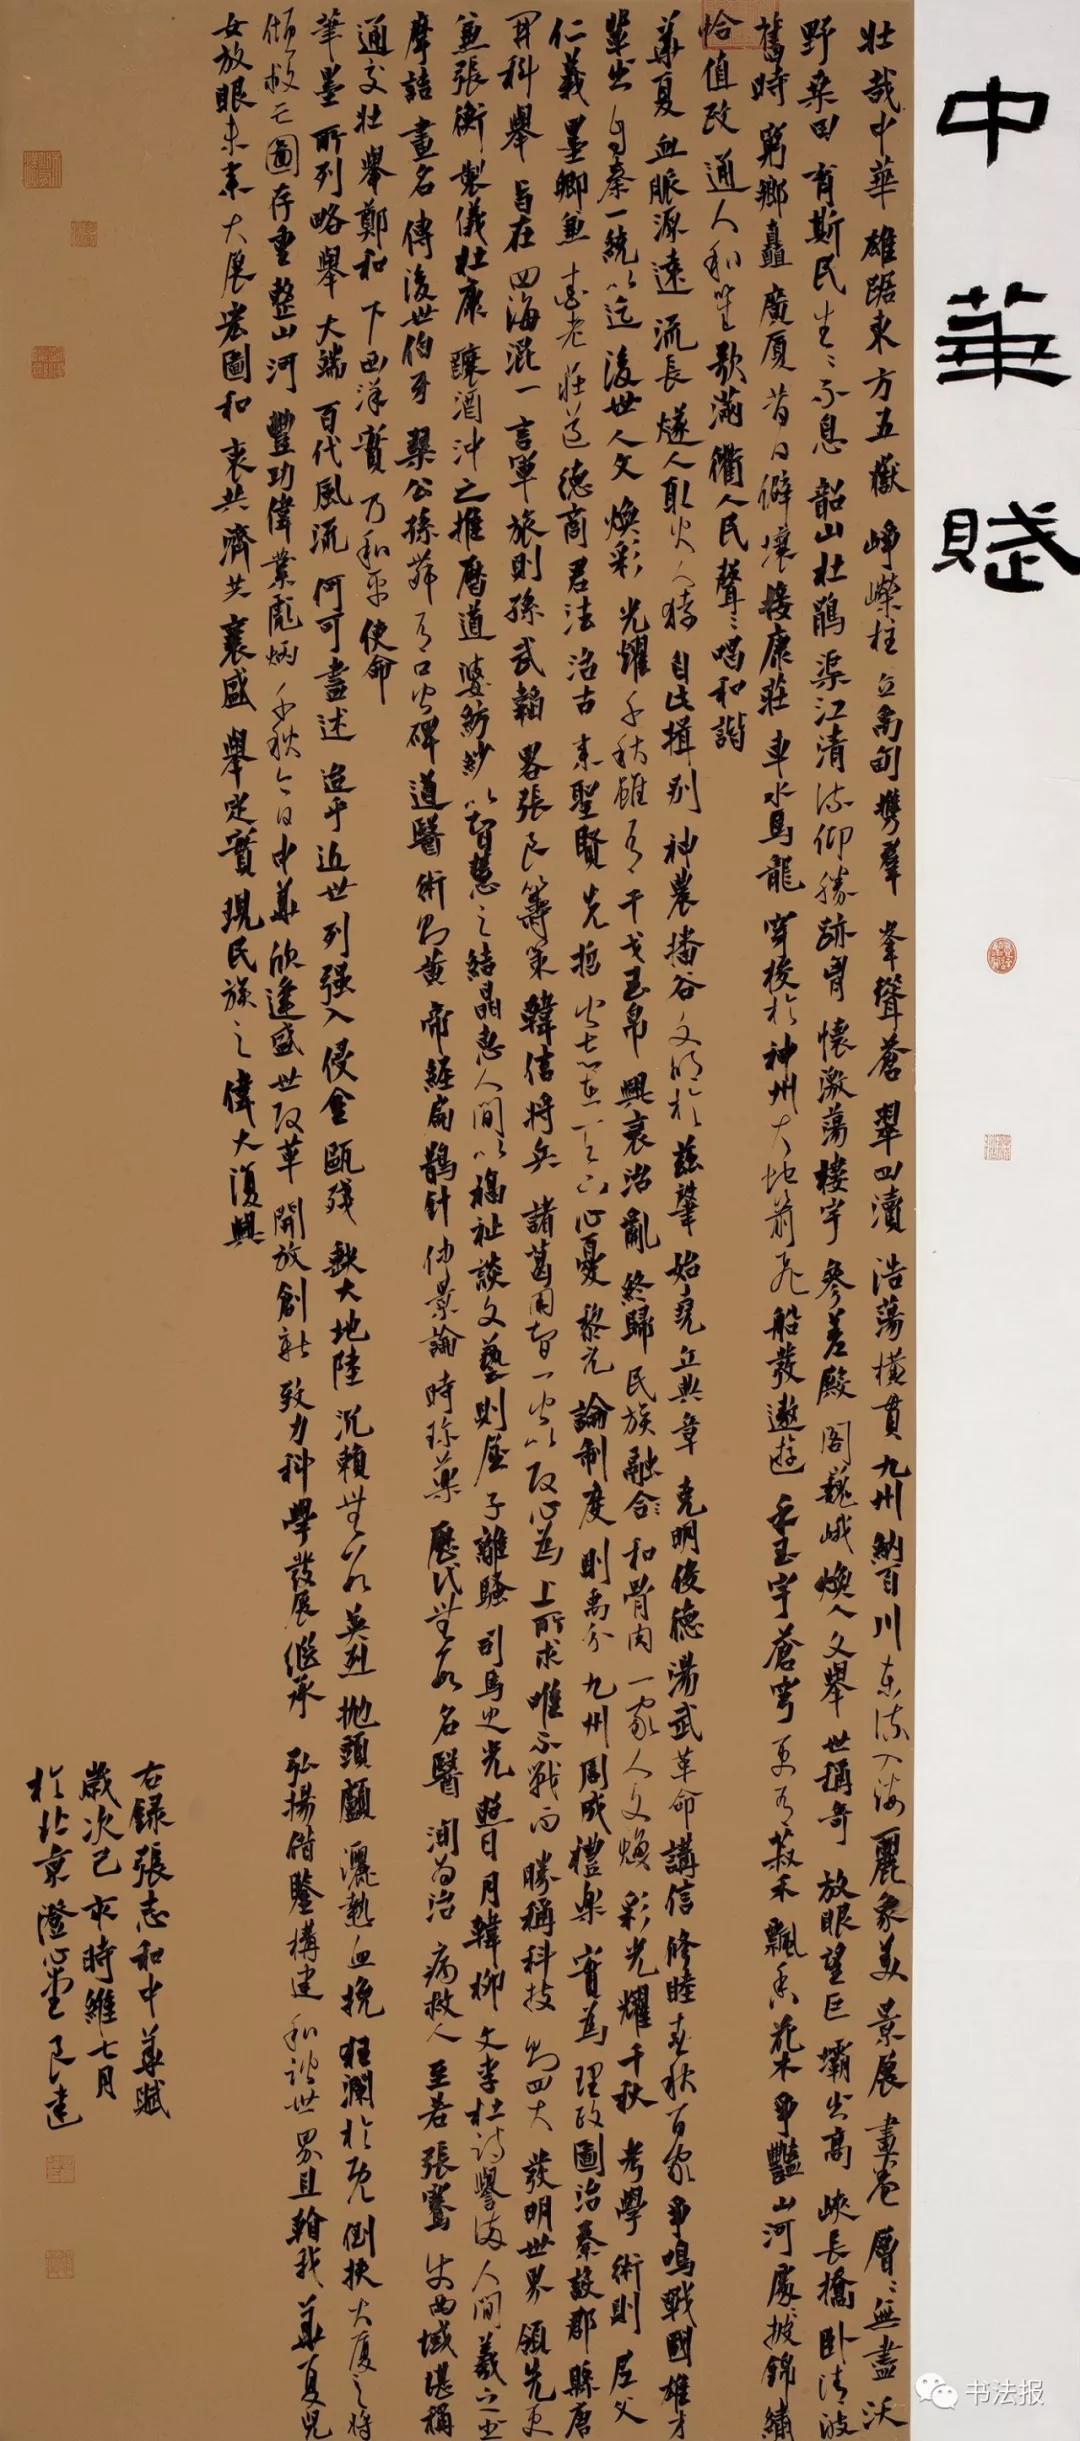 中華賦
壮哉中華雄踞東方五嶽崢嶸柱立禹甸攜羣峯聳蒼翠四瀆浩蕩橫貫九州納百川東流入海麗象美景展畫卷層層無盡沃
野桑田育斯民生生不息韶山杜鵑渠江清流仰勝跡胃懷激蕩樓宇參差殿閣巍峨煥人文舉世稱奇放眼望巨壩出高峽長橋卧清波
舊時窮鄉矗廣厦昔日僻壤接康莊車水馬龍穿梭於神州大地箭飛船發遨遊乎玉宇蒼穹更有菽禾飄香花木爭豔山河處處披錦繡
恰值政通人和笙歌滿衢人民聲聲唱和諧
華夏血脈源遠流長燧人取火人猿自此揖别神農播谷文明於茲肇始堯立典章克明俊德湯武革命講信修睦春秋百家爭鳴戰國雄才
輩出自秦一統以迄後世人文煥彩光耀千秋雖有干戈玉帛興衰治亂終歸民族融合和骨肉一家人文煥彩光耀千秋考學術則尼父
仁義墨卿兼愛老莊道德商君法治古來聖賢先哲皆志在天下心憂黎元論制度則禹分九州周成禮樂實為理政圖治秦設郡縣唐
開科舉旨在四海混一言軍旅則孫武韜畧張良籌策韓信將兵諸葛用智一皆以攻心為上所求唯不戰而勝稱科技則四大發明世界領先更
兼張衡製儀杜康釀酒沖之推曆道婆紡紗以智慧之結晶惠人間以福祉談文藝則屈子離騷司馬史光照日月韓柳文李杜詩譽滿人間羲之書
摩詰畫名傳後世伯牙琴公孫舞有口皆碑道醫術則黄帝經扁鵲針仲景論時珍藥歷代無數名醫洵為治病救人至若張騫使西域堪稱
通交壮舉鄭和下西洋實乃和平使命
筆墨所列略舉大端百代風流何可盡述迨乎近世列强入侵金甌殘缺大地陸沉賴無數英烈抛頭顱灑熱血挽狂瀾於既倒扶大廈之將
傾救亡圖存重整山河豐功偉業彪炳千秋今日中華欣逢盛世改革開放創新致力科學發展繼承弘揚借鑒構建和諧世界且翰我華夏兒
女放眼未來大展宏圖和衷共濟共襄盛舉定實現民族之偉大復興
右録張志和中華賦
歲次己亥時維七月
於北京澄心堂良建
书法报